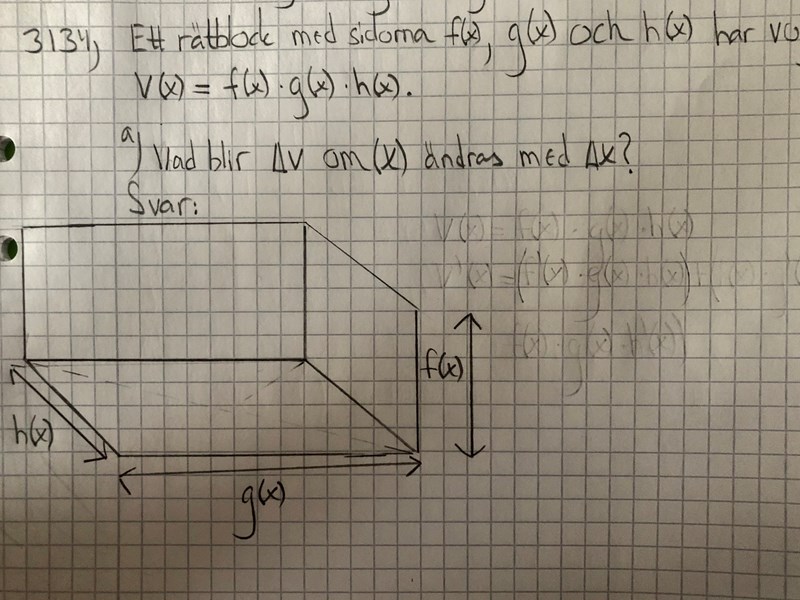 3134) Ett rätblock med sidorna f(x), g(x) och h(x) har vo
V(x) = f(x)·g(x)·h(x).
a) Vad blir ΔV om(x) ändras med Δx?
Svar:
V(x) = f(x)·g(x)·h(x)
f(x)
h(x)
g(x)